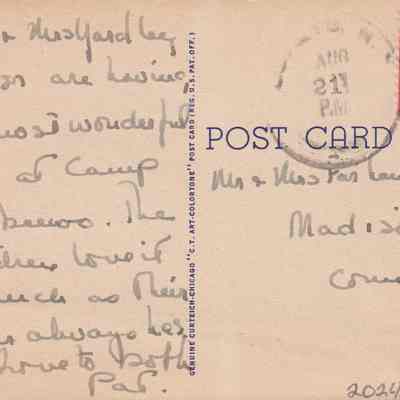 & Mrs Yardley
are having
most wonderful
at Camp
The
love it
much as their
always has
Love to both
Pat.
GENUINE CURTEICH-CHICAGO "C.T. ART-COLORTONE" POST CARD (REG. U.S. PAT. OFF.)
AUG
21
P.M
POST CARD
Mr & Mrs
Madis
Conn
2024